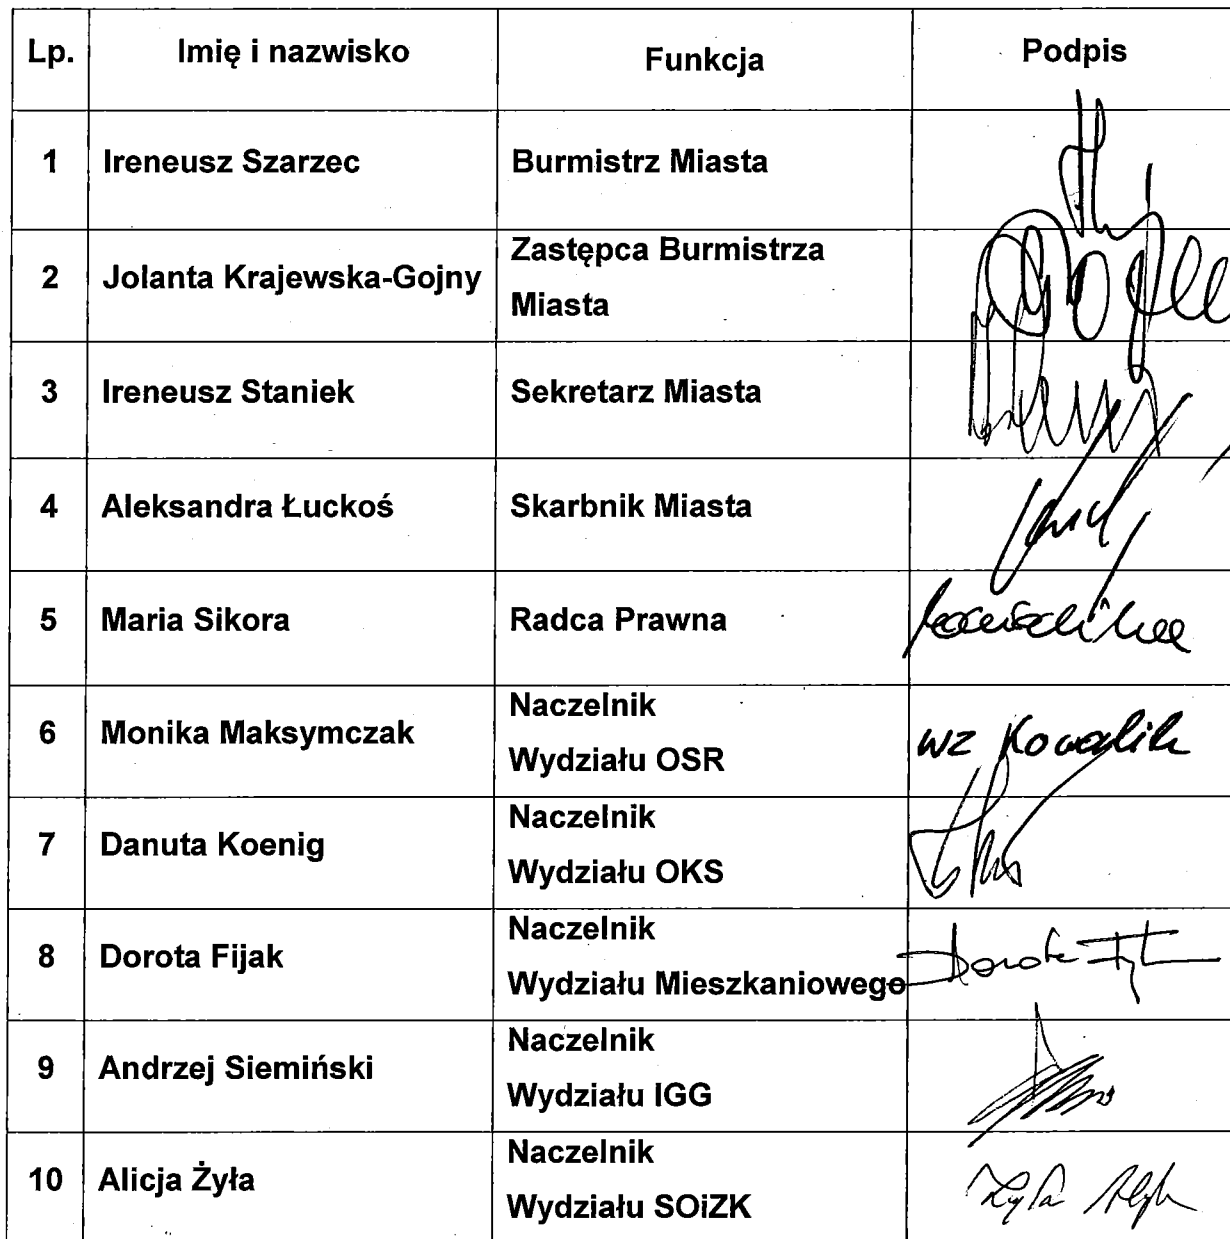 Lp. Imię i nazwisko Funkcja Podpis
1 Ireneusz Szarzec Burmistrz Miasta
2 Jolanta Krajewska-Gojny Zastępca Burmistrza
Miasta
3 Ireneusz Staniek Sekretarz Miasta
4 Aleksandra Łuckoś Skarbnik Miasta
5 Maria Sikora Radca Prawna
6 Monika Maksymczak Naczelnik
Wydziału OSR wz Kowalik
7 Danuta Koenig Naczelnik
Wydziału OKS
8 Dorota Fijak Naczelnik
Wydziału Mieszkaniowego Dorota
9 Andrzej Siemiński Naczelnik
Wydziału IGG
10 Alicja Żyła Naczelnik
Wydziału SOiZK